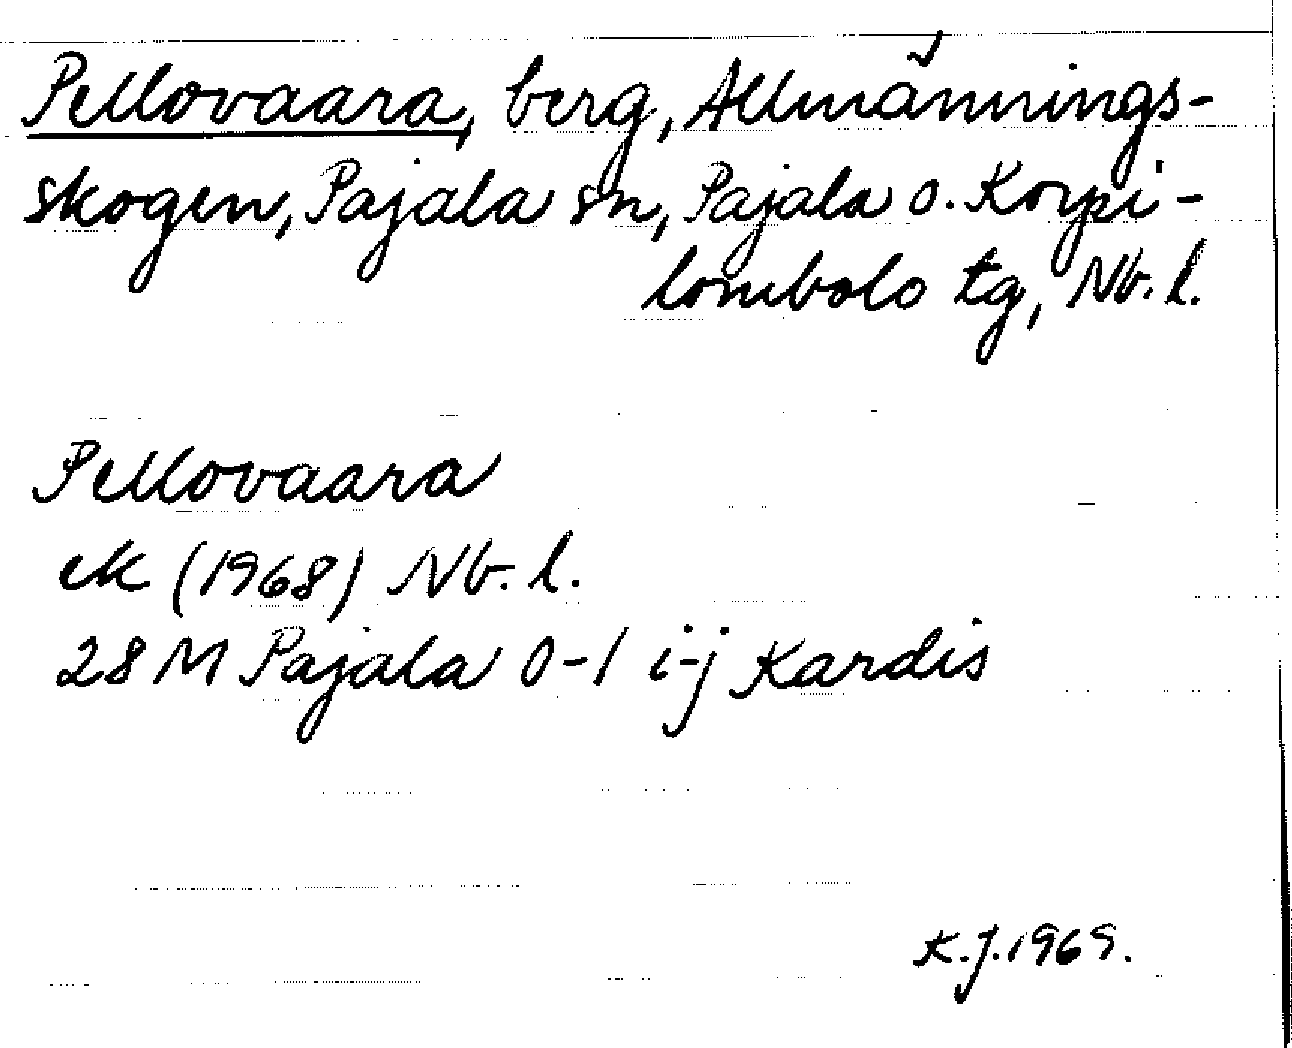 Pellovaara, berg, Allmännings-
skogen, Pajala sn, Pajala o. Korpi-
lombolo tg, Nb. l.
Pellovaara
ek (1968) Nb. l.
28 M Pajala 0-1 i-j Kardis
K.J. 1969.